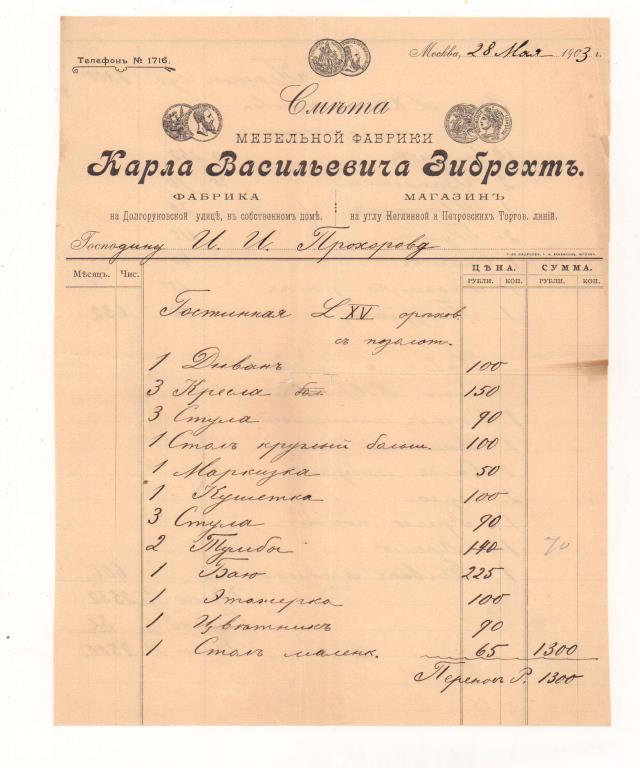 Телефонъ № 1716.
Москва, 28 Мая 1903 г.
Смѣта
МЕБЕЛЬНОЙ ФАБРИКИ
Карла Васильевича Зибрехтъ.
ФАБРИКА
на Долгоруковской улицѣ, въ собственномъ домѣ.
МАГАЗИНЪ
на углу Неглинной и Петровскихъ Торгов. линій.
Господину И. И. Прохорову
Мѣсяцъ. Чис. ЦѢНА. СУММА.
РУБЛИ. КОП. РУБЛИ. КОП.
Гостинная L XV орѣхов.
съ позолот.
1 Диванъ 100
3 Кресла 150
3 Стула 90
1 Столъ круглый больш. 100
1 Маркизка 50
1 Кушетка 100
3 Стула 90
2 Тумбы 140 70
1 Баю 225
1 Этажерка 100
1 Цвѣтникъ 90
1 Столъ маленк. 65 1300
Переносъ Р. 1300